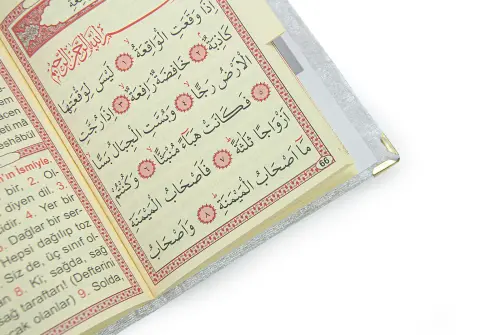 بِسْمِ اللّٰهِ الرَّحْمٰنِ الرَّحِيمِ
اِذَا وَقَعَتِ الْوَاقِعَةُ ﴿١﴾ لَيْسَ لِوَقْعَتِهَا
كَاذِبَةٌ ﴿٢﴾ خَافِضَةٌ رَافِعَةٌ ﴿٣﴾ اِذَا رُجَّتِ
الْاَرْضُ رَجًّا ﴿٤﴾ وَبُسَّتِ الْجِبَالُ بَسًّا ﴿٥﴾
فَكَانَتْ هَبَاءً مُنْبَثًّا ﴿٦﴾ وَكُنْتُمْ
اَزْوَاجًا ثَلٰثَةً ﴿٧﴾ فَاَصْحَابُ الْمَيْمَنَةِ
مَا اَصْحَابُ الْمَيْمَنَةِ ﴿٨﴾ وَاَصْحَابُ
66
eti mâ
eshâbül
İsmiyle,
bir, 2. Ol-
diyen dil.
4. Yer bir
Dağlar bir ser-
Hepsi dağılıp toz
Siz de, üç sınıf ol-
8. Ki; sağda, sağ
taraftarı! (Defterini
olanlar) 9. Solda,